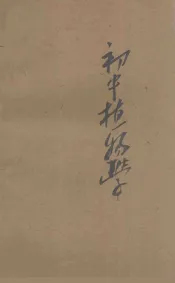 初中植物学